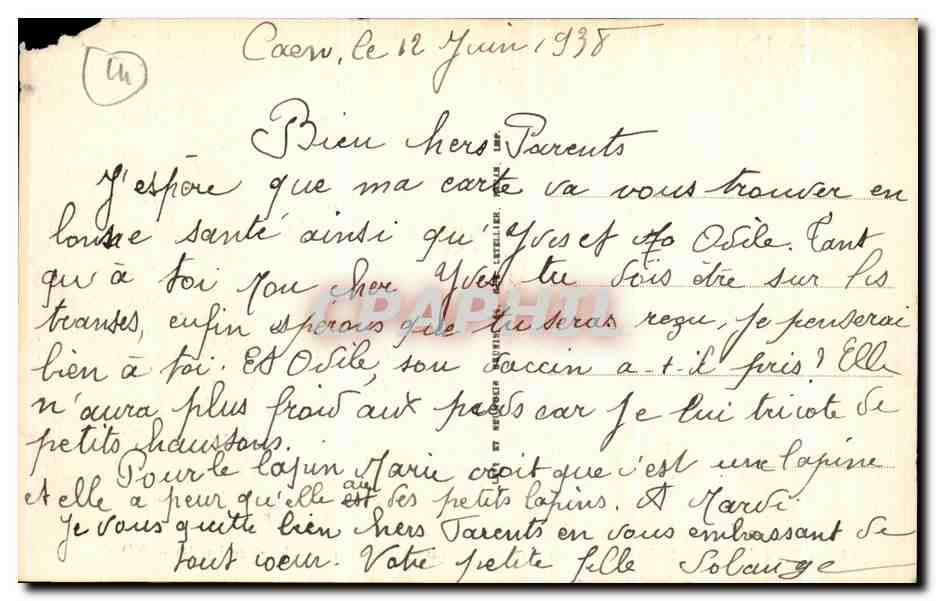 Caen, le 12 Juin 1938
Bien chers Parents
J'espère que ma carte va vous trouver en
bonne santé ainsi qu'Yves et Odile. Tant
qu'à toi mon cher Yves tu dois être sur les
transes, enfin espérons que tu seras reçu, je penserai
bien à toi. Et Odile, son vaccin a-t-il pris? Elle
n'aura plus froid aux pieds car je lui tricote de
petits chaussons.
Pour le lapin Marie croit que c'est une lapine
et elle a peur qu'elle ait des petits lapins. A Mardi
Je vous quitte bien chers Parents en vous embrassant de
tout coeur. Votre petite fille Solange
CPAPHIL